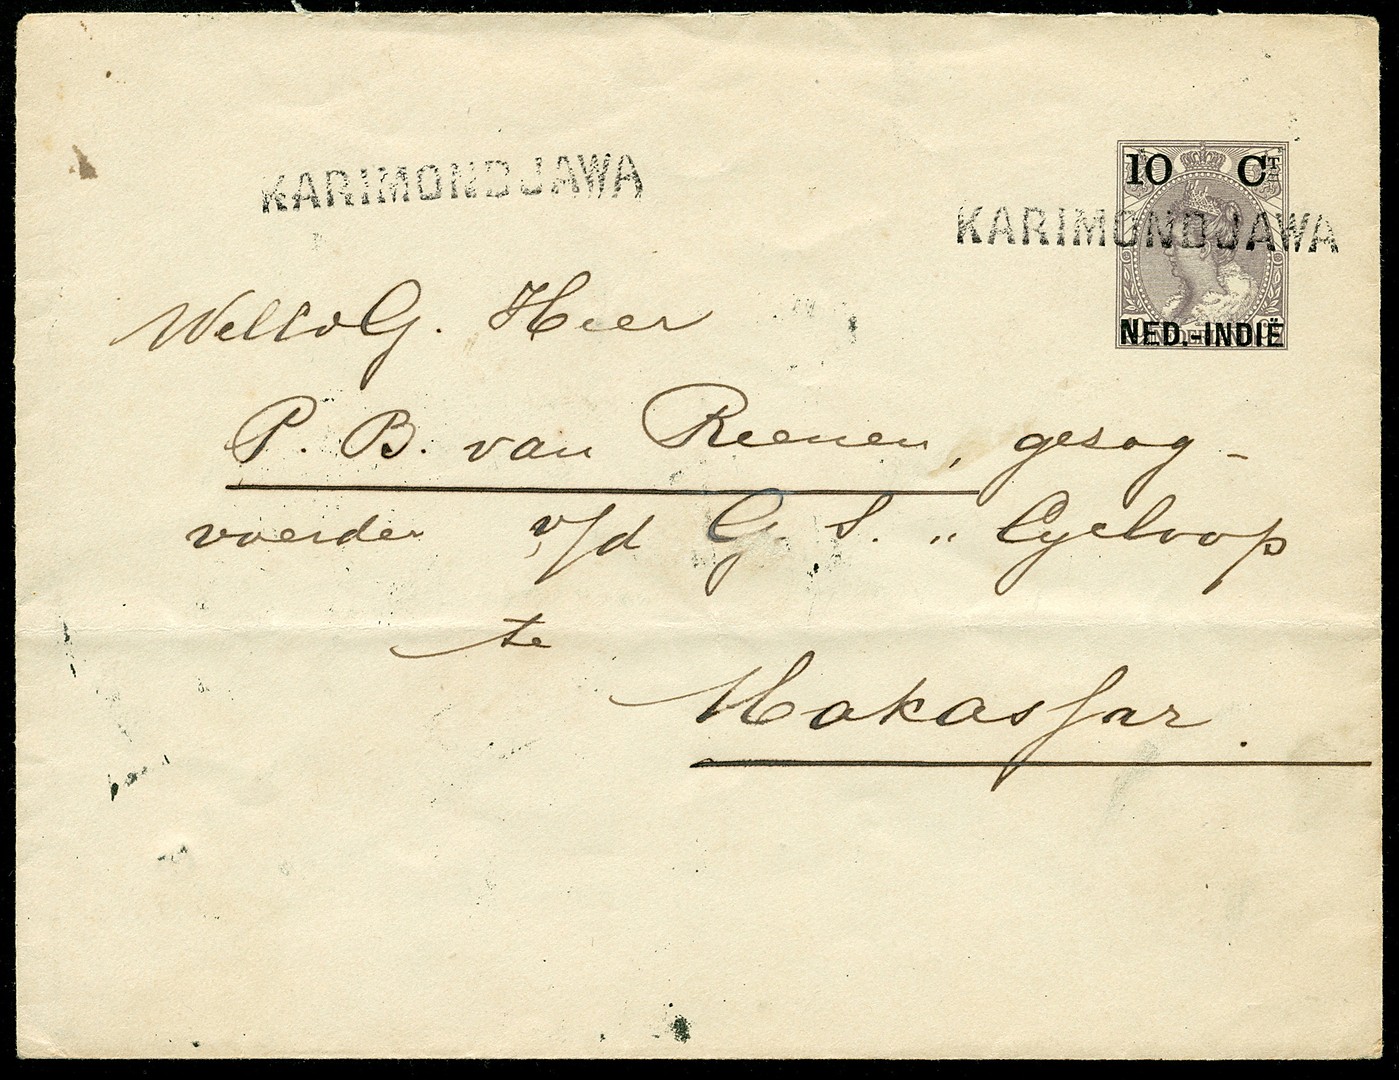 KARIMONDJAWA
10 CT
KARIMONDJAWA
NED.-INDIË
Heer
P. B. van Reenen, gezag-
voerder v/d G. S. „Cycloop
te
Makassar.